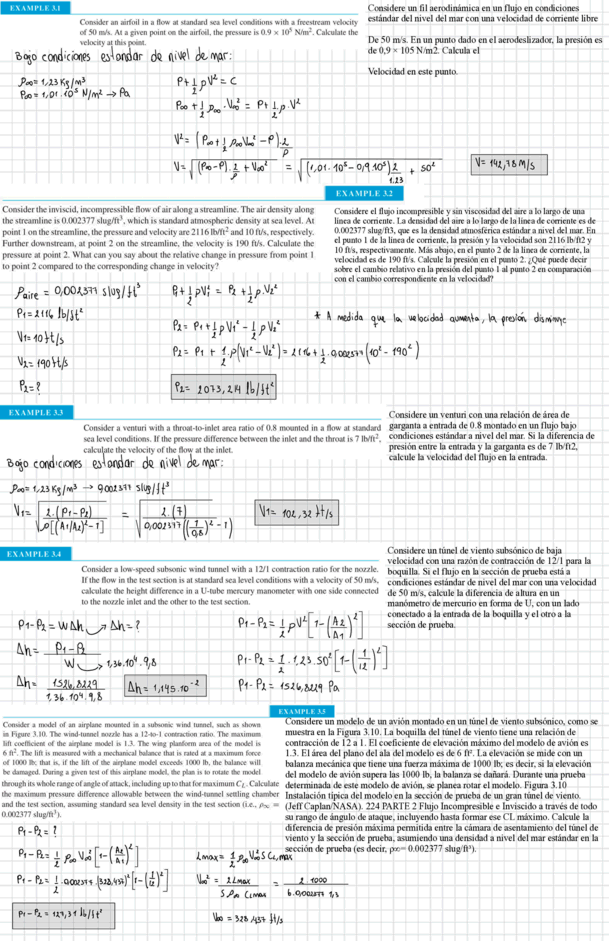 EXAMPLE 3.1
Consider an airfoil in a flow at standard sea level conditions with a freestream velocity
of 50 m/s. At a given point on the airfoil, the pressure is 0.9 × 10⁵ N/m². Calculate the
velocity at this point.
Considere un fil aerodinámica en un flujo en condiciones
estándar del nivel del mar con una velocidad de corriente libre
De 50 m/s. En un punto dado en el aerodeslizador, la presión es
de 0,9 × 105 N/m2. Calcula el
Velocidad en este punto.
Bajo condiciones estandar de nivel de mar:
ρ∞= 1,23 Kg/m³
P∞= 1,01 · 10⁵ N/m² → Pa
P + 1/2 ρV² = C
P∞ + 1/2 ρ∞ · V∞² = P + 1/2 ρ · V²
V² = (P∞ + 1/2 ρ∞V∞² - P) · 2/ρ
V = √((P∞-P) · 2/ρ + V∞²) = √((1,01 · 10⁵ - 0,9 · 10⁵) 2/1.23 + 50²)
V= 142,78 m/s
EXAMPLE 3.2
Consider the inviscid, incompressible flow of air along a streamline. The air density along
the streamline is 0.002377 slug/ft³, which is standard atmospheric density at sea level. At
point 1 on the streamline, the pressure and velocity are 2116 lb/ft² and 10 ft/s, respectively.
Further downstream, at point 2 on the streamline, the velocity is 190 ft/s. Calculate the
pressure at point 2. What can you say about the relative change in pressure from point 1
to point 2 compared to the corresponding change in velocity?
Considere el flujo incompresible y sin viscosidad del aire a lo largo de una
línea de corriente. La densidad del aire a lo largo de la línea de corriente es de
0.002377 slug/ft3, que es la densidad atmosférica estándar a nivel del mar. En
el punto 1 de la línea de corriente, la presión y la velocidad son 2116 lb/ft2 y
10 ft/s, respectivamente. Más abajo, en el punto 2 de la línea de corriente, la
velocidad es de 190 ft/s. Calcule la presión en el punto 2. ¿Qué puede decir
sobre el cambio relativo en la presión del punto 1 al punto 2 en comparación
con el cambio correspondiente en la velocidad?
ρaire = 0,002377 slug/ft³
P1= 2116 lb/ft²
V1= 10 ft/s
V2= 190 ft/s
P2= ?
P1 + 1/2 ρV1² = P2 + 1/2 ρ · V2²
P2 = P1 + 1/2 ρ V1² - 1/2 ρV2²
P2 = P1 + 1/2 · ρ(V1² - V2²) = 2116 + 1/2 · 0,002377 (10² - 190²)
P2= 2073,214 lb/ft²
* A medida que la velocidad aumenta, la presión disminye
EXAMPLE 3.3
Consider a venturi with a throat-to-inlet area ratio of 0.8 mounted in a flow at standard
sea level conditions. If the pressure difference between the inlet and the throat is 7 lb/ft²,
calculate the velocity of the flow at the inlet.
Considere un venturi con una relación de área de
garganta a entrada de 0.8 montado en un flujo bajo
condiciones estándar a nivel del mar. Si la diferencia de
presión entre la entrada y la garganta es de 7 lb/ft2,
calcule la velocidad del flujo en la entrada.
Bajo condiciones estandar de nivel de mar:
ρ∞= 1,23 Kg/m³ → 0,002377 slug/ft³
V1= √(2 · (P1-P2) / ρ[(A1/A2)²-1]) = √(2 · (7) / 0,002377((1/0,8)² - 1))
V1= 102,32 ft/s
EXAMPLE 3.4
Consider a low-speed subsonic wind tunnel with a 12/1 contraction ratio for the nozzle.
If the flow in the test section is at standard sea level conditions with a velocity of 50 m/s,
calculate the height difference in a U-tube mercury manometer with one side connected
to the nozzle inlet and the other to the test section.
Considere un túnel de viento subsónico de baja
velocidad con una razón de contracción de 12/1 para la
boquilla. Si el flujo en la sección de prueba está a
condiciones estándar de nivel del mar con una velocidad
de 50 m/s, calcule la diferencia de altura en un
manómetro de mercurio en forma de U, con un lado
conectado a la entrada de la boquilla y el otro a la
sección de prueba.
P1-P2 = WΔh → Δh = ?
Δh = P1-P2 / W → 1,36 · 10⁴ · 9,8
Δh = 1526,8229 / 1,36 · 10⁴ · 9,8
Δh = 1,145 · 10⁻²
P1-P2 = 1/2 ρV² [1-(A2/A1)²]
P1-P2 = 1/2 · 1,23 · 50² [1-(1/12)²]
P1-P2 = 1526,8229 Pa
EXAMPLE 3.5
Consider a model of an airplane mounted in a subsonic wind tunnel, such as shown
in Figure 3.10. The wind-tunnel nozzle has a 12-to-1 contraction ratio. The maximum
lift coefficient of the airplane model is 1.3. The wing planform area of the model is
6 ft². The lift is measured with a mechanical balance that is rated at a maximum force
of 1000 lb; that is, if the lift of the airplane model exceeds 1000 lb, the balance will
be damaged. During a given test of this airplane model, the plan is to rotate the model
through its whole range of angle of attack, including up to that for maximum C_L. Calculate
the maximum pressure difference allowable between the wind-tunnel settling chamber
and the test section, assuming standard sea level density in the test section (i.e., ρ∞ =
0.002377 slug/ft³).
Considere un modelo de un avión montado en un túnel de viento subsónico, como se
muestra en la Figura 3.10. La boquilla del túnel de viento tiene una relación de
contracción de 12 a 1. El coeficiente de elevación máximo del modelo de avión es
1.3. El área del plano del ala del modelo es de 6 ft². La elevación se mide con un
balanza mecánica que tiene una fuerza máxima de 1000 lb; es decir, si la elevación
del modelo de avión supera las 1000 lb, la balanza se dañará. Durante una prueba
determinada de este modelo de avión, se planea rotar el modelo. Figura 3.10
Instalación típica del modelo en la sección de prueba de un gran túnel de viento.
(Jeff Caplan/NASA). 224 PARTE 2 Flujo Incompresible e Inviscido a través de todo
su rango de ángulo de ataque, incluyendo hasta formar ese CL máximo. Calcule la
diferencia de presión máxima permitida entre la cámara de asentamiento del túnel de
viento y la sección de prueba, asumiendo una densidad a nivel del mar estándar en la
sección de prueba (es decir, ρ∞= 0.002377 slug/ft³).
P1-P2 = ?
P1-P2 = 1/2 ρ∞ V∞² [1-(A2/A1)²]
P1-P2 = 1/2 · 0,002377 · (328,437)² [1-(1/12)²]
P1-P2 = 127,31 lb/ft²
Lmax = 1/2 ρ∞ V∞² S CL,max
V∞² = 2Lmax / S ρ∞ CLmax = 2 · 1000 / 6 · 0,002377 · 1,3
V∞ = 328,437 ft/s